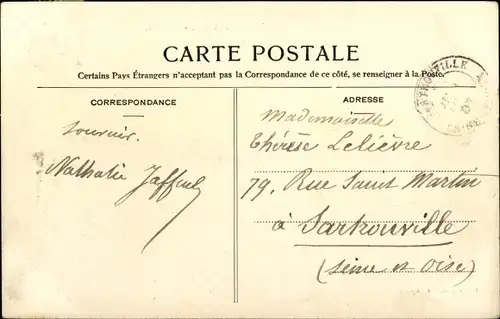 CARTE POSTALE
Certains Pays Étrangers n'acceptant pas la Correspondance de ce côté, se renseigner à la Poste.
CORRESPONDANCE
Souvenir.
Nathalie
ADRESSE
Mademoiselle
Thérèse Lelièvre
79, Rue Saint Martin
à Sartrouville
(Seine et Oise)